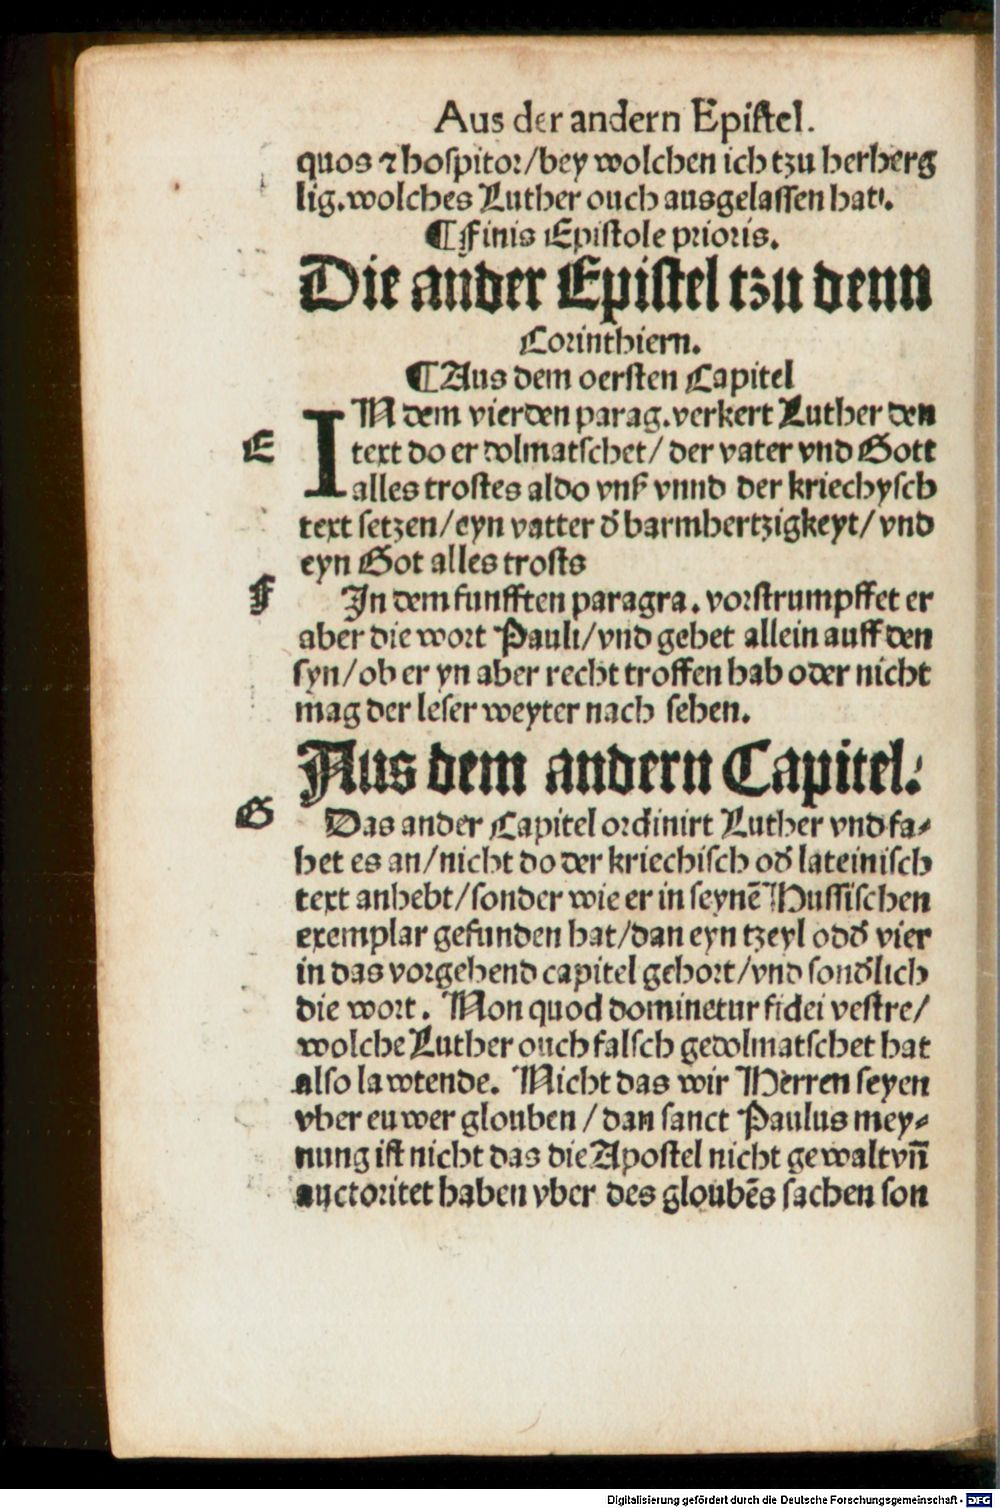 Aus der andern Epistel.
quos ⁊ hospitor/bey wolchen ich tzu herberg
lig. wolches Luther ouch ausgelassen hat.
¶ Finis Epistole prioris.
Die ander Epistel tzu denn
Corinthiern.
¶ Aus dem oersten Capitel
E
IN dem vierden parag. verkert Luther den
text do er dolmatschet/ der vater vnd Gott
alles trostes aldo vnß vnnd der kriechysch
text setzen/eyn vatter d̕ barmhertzigkeyt/ vnd
eyn Got alles trosts
F
In dem funfften paragra. vorstrumpffet er
aber die wort Pauli/vnd gehet allein auff den
syn/ob er yn aber recht troffen hab oder nicht
mag der leser weyter nach sehen.
Aus dem andern Capitel.
G
Das ander Capitel ordinirt Luther vnd fa⸗
het es an/nicht do der kriechisch od̕ lateinisch
text anhebt/sonder wie er in seynē Hussischen
exemplar gefunden hat/dan eyn tzeyl odd̕ vier
in das vorgehend capitel gehort/vnd sond̕lich
die wort. Non quod dominetur fidei vestre/
wolche Luther ouch falsch gedolmatschet hat
also lawtende. Nicht das wir Herren seyen
vber euwer glouben / dan sanct Paulus mey⸗
nung ist nicht das die Apostel nicht gewalt vñ
auctoritet haben vber des gloubēs sachen son
Digitalisierung gefördert durch die Deutsche Forschungsgemeinschaft - DFG